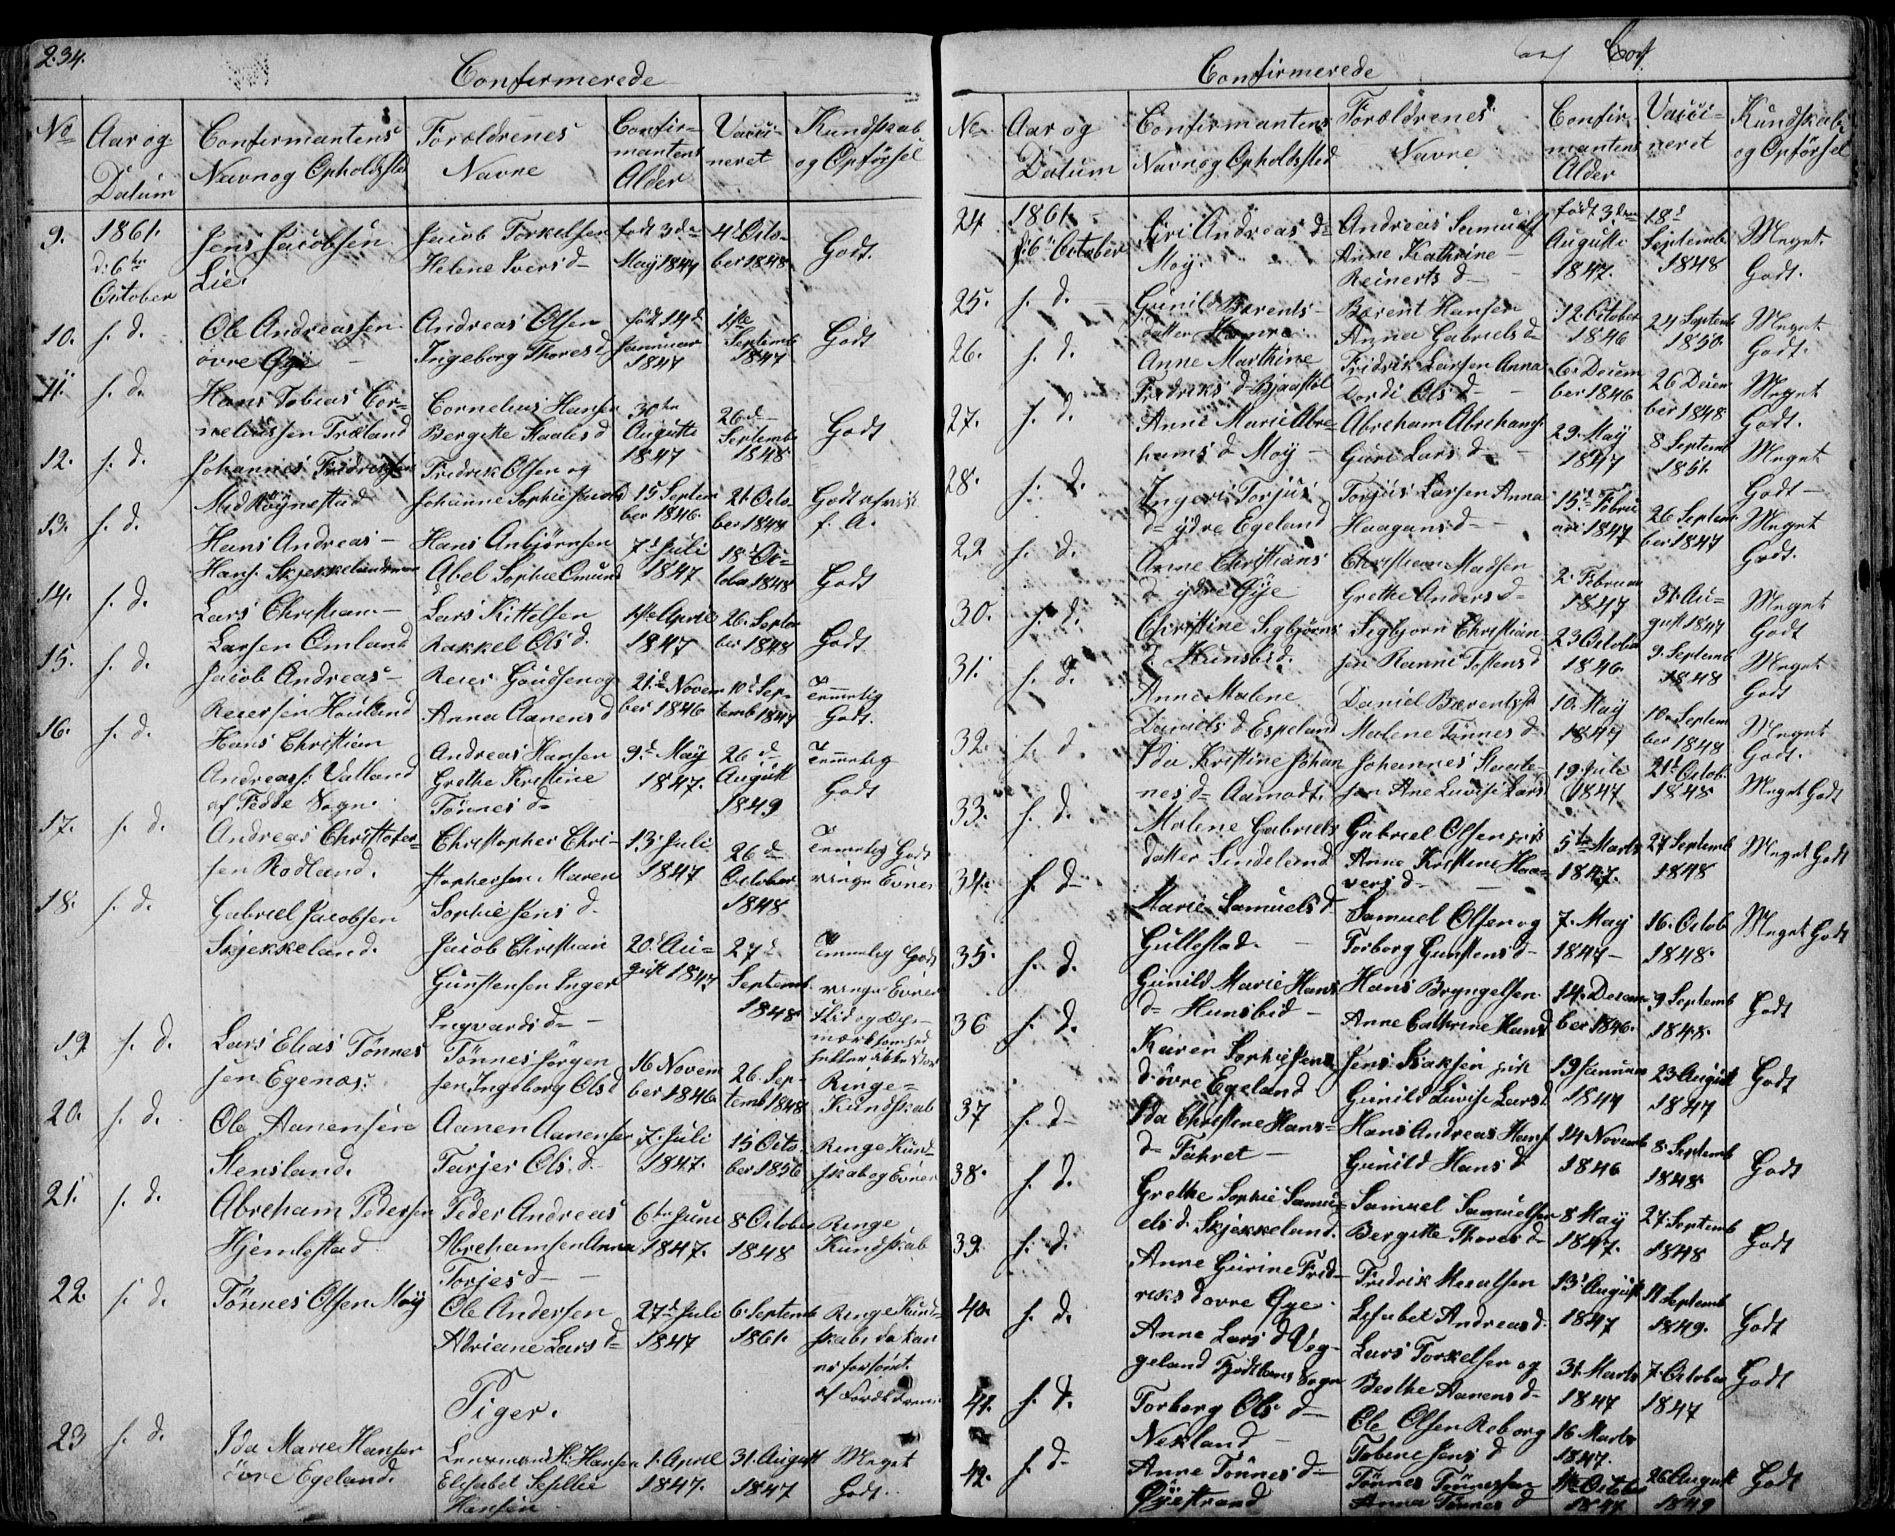 234.
Confirmerede
No
Aar og
Datum
Confirmantens
Navn og Opholdssted
Forældrenes
Navne
Confir-
mantens
Alder
Vacci-
neret
Kundskab
og Opførsel
9.
1861.
d: 6te
October
Jens Jacobsen
Lie.
Jacob Torkelsen
Helene Ivers d-
født 3de
May 1847
4d Octo-
ber 1848
Godt.
10.
s. d.
Ole Andreassen
øvre Øye
Andreas Olsen
Ingeborg Thores d
født 14d
Januar
1847
Septemb
1847
Godt
11.
s. d.
Hans Tobias Cor-
neliussen Træland
Cornelius Hansen
Bergitte Staales d
30te
Augusti
1847
26d
Septemb
1848
Godt
12.
s. d.
Johannes Fredriksen
Røynestad
Fredrik Olsen og
Johanne Sophie
15 Septem
ber 1846
21 Octo-
ber 1847
Godt
13.
s. d.
Hans Andreas-
Hans. Skjekkeland
Hans Anbjørnsen
Abel Sophie Omund
d
7d Juli
1847
18d Oc-
tober 1848
Godt
14.
s. d.
Lars Christian-
Larsen Omland
Lars Kittelsen
Rakkel Ols d.
1ste April
1847
26. Septem
ber 1848
Godt
15.
s. d.
Jacob Andreas-
Reiersen Houland
Reier Goudsen og
Anna Aanens d
21d Novem
ber 1846
10d Sep-
temb 1847
Temmelig
Godt.
16.
s. d.
Hans Christian
Andreass: Valland
af Fedde Sogn.
Andreas Hansen
Grethe Kristine
Tønnes d-
9d May
1847.
26 d
August
1849
Temmelig
Godt
17.
s. d.
Andreas Christofer-
sen Rødland.
Christopher Chri-
stophersen Maren
Sophie Jens d.
13d Juli
1847
26 d
October
1848
Temmelig Godt
ringe Evner
18.
s. d.
Gabriel Jacobsen
Skjekkeland.
Jacob Christian
Gunstensen Inger
Ingvards d-
20d Au-
gust 1847
27d
Septemb
1848
Temmelig Godt
ringe Evner
Flid og Op-
mærksomhed
19.
s. d.
Lars Elias Tønnes
sen Egenæs.
Tønnes Jørgen
sen Ingeborg Ols d
16 Novem
ber 1846
26. Sep-
temb 1848
Ringe-
Kundskab
20.
s. d.
Ole Aanensen
Stensland.
Aanen Aanensen
Tarjer Ols. d.
7d Juli
1847.
15 Octo-
ber 1856
Ringe Kund-
skab og Evner
21.
s. d.
Abreham Pedersen
Hjemlestad
Peder Andreas
Abrehamsen Anna
Torjes d-
6te Juni
1847.
8 October
1848
Ringe
Kundskab
22.
s. d.
Tønnes Olsen Moy
Ole Andersen
Adriane Lars d-
27d Juli
1847
6. Septemb
1861.
Ringe Kund-
skab, da han
er forsømt
af Forældrene
Piger.
23
s. d.
Ida Marie Hansen
øvre Egeland.
Lensmand H: Hansen
Elisabet
Hansen
1. April
1847.
31. August
1847
Meget
Godt.
Confirmerede
No
Aar og
Datum
Confirmantens
Navn og Opholdssted
Forældrenes
Navne
Confir-
mantens
Alder
Vacci-
neret
Kundskab
og Opførsel
24
1861.
d: 6 October
Siri Andreas d-
Moy.
Andreas Samuels
Anne Kathrine-
Reinerts d-
født 3de
Augusti
1847.
18d
Septemb
1848
Meget
Godt.
25.
s. d.
Gunild Bærents-
datter
Bærent Hansen
Anna Gabriels d-
12 October
1846
24 Septemb
1850.
Meget
Godt.
26.
s. d.
Anne Marthine
Fredriks d- Bjaastøl
Fredrik Larsen Anna
Dordi Ols d-
6. Decem
ber 1846
26 Decem
ber 1848
Meget
Godt.
27.
s. d.
Anne Marie Abre-
hams d Moy-
Abreham Abrehams
Guri Lars d-
29. May
1847
8 Septemb
1851.
Meget
Godt-
28.
s. d.
Ingeri Torjus
d- ydre Egeland
Torjus Larsen Anna
Haagans d-
15d Febru
ar 1847
26 Septem
ber 1847
Meget
Godt.
29
s. d.
Anne Christians
d ydre Øye
Christian Madsen
Grethe Anders d-
2. Februar
1847
31. Au-
gust 1847
Meget
Godt
30.
s. d.
Christine Sigbjørns
d. Hunsbed.
Sigbjørn Christian
sen Ranni Tostens d
23 October
1846
9. Septemb
1848
Meget
Godt
31.
s. d.
Anne Malene
Daniels d Espeland
Daniel Bærentsen
Malene Tønnes d
10. May
1847
10. Septem
ber 1848
Meget
Godt.
32.
s. d.
Ida Kristine Johan
nes d- Aamodt.
Johannes Staale-
sen Ane Luvise Lars d
19 Juli
1847
21d Octob.
1848
Meget Godt
33.
s. d.
Malene Gabriels
datter Sindeland
Gabriel Olsen
Anne Kristine Haa-
vers d-
5te Marts
1847.
27 Septemb
1848
Meget Godt
34.
s. d-
Marie Samuels d
Gullestad.
Samuel Olsen og
Torborg Gunstens d-
7. May
1847-
16. Octob
1848.
Meget Godt
35.
s. d.
Gunild Marie Hans
d- Hunsbed-
Hans Bryngelsen
Anne Cathrine Hans d
14. Decem
ber 1846.
9 Septemb
1848.
Godt
36
s. d.
Karen Sophie Jens
d. øvre Egeland
Jens Isaksen
Gunild Luvise Lars d.
19 Januar
1847
23 August
1847
Godt
37
s. d-
Ida Christine Hans-
d-
Hans Andreas Hans
Gunild Hans d
14 Novemb
1846
8. Septemb
1848
Godt
38.
s. d.
Grethe Sophie Samu-
els d. Skjekkeland.
Samuel Samuelsen
Bergitte Thores d-
8 May
1847.
27. Septemb
1848
Godt
39.
s. d.
Anne Gurine Fred-
riks d øvre Øye.
Fredrik
Lisabet Andreas d.
13d August
1847
11 Septemb
1849.
Godt
40.
s. d.
Anne Lars d Veg-
geland
Lars Torkelsen og
Berthe Aanens d-
31. Marts
1847
7. October
1847
Godt
41.
s. d.
Torborg Ols d-
Nekland-
Ole Olsen
Tobine Jens d
16 Marts
1847.
42.
s. d-
Anne Tønnes d-
Øyestrand
Tønnes Tønnessen
Anna Tønnes d
October
1847.
26 August
1849
Godt